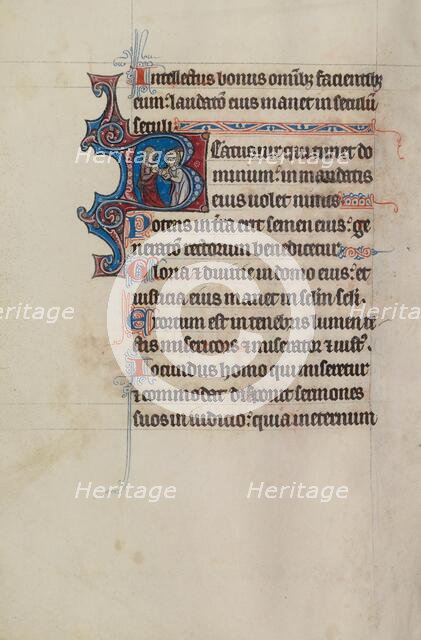 Intellectus bonus omĩbȝ facientibȝ
eum: laudatõ eius manet in seculũ
seculi
Beatus uir qui timet do
minum: in mandatis
eius uolet nimis
Potens in t̾ra erit semen eius: ge
neratõ rectorum benedicetur
Gloria ⁊ diuitie in domo eius: et
iusticia eius manet in sc̃lm sc̃li.
Exortum est in tenebris lumen re
ctis misericors ⁊ miserator ⁊ iust᷒.
Iocundus homo qui miseretur
⁊ commodat disponit sermones
suos in iudicio: quia in eternum
Heritage
Heritage
Heritage
Heritage
Heritage
Heritage
Heritage